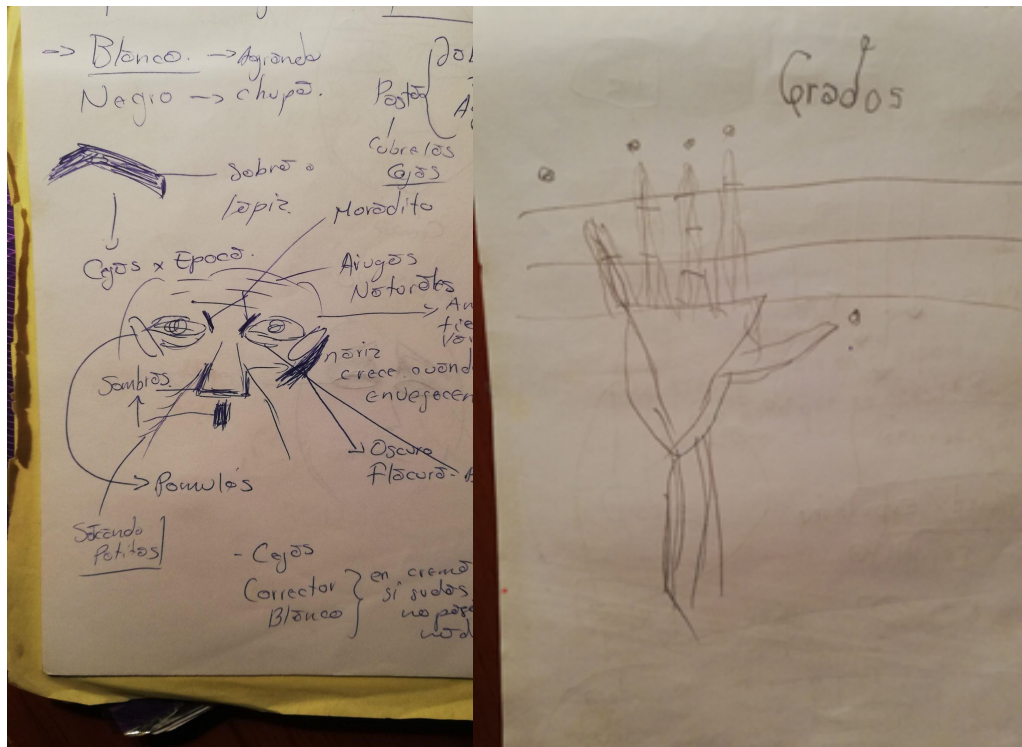 → Blanco. → Agranda
Negro → chupa.
Pasta
Cubre las
Cejas
Sobra o
lapiz.
Moradito
Cejas x Epoca.
Arugas
Naturales
nariz
crece cuando
envegecen
Sombras
Oscuro
Flacura
Pomulos
Sacando
Patitas
- Cejas
Corrector
Blanco
en crema
si sudas
no pasa
nad
Grados